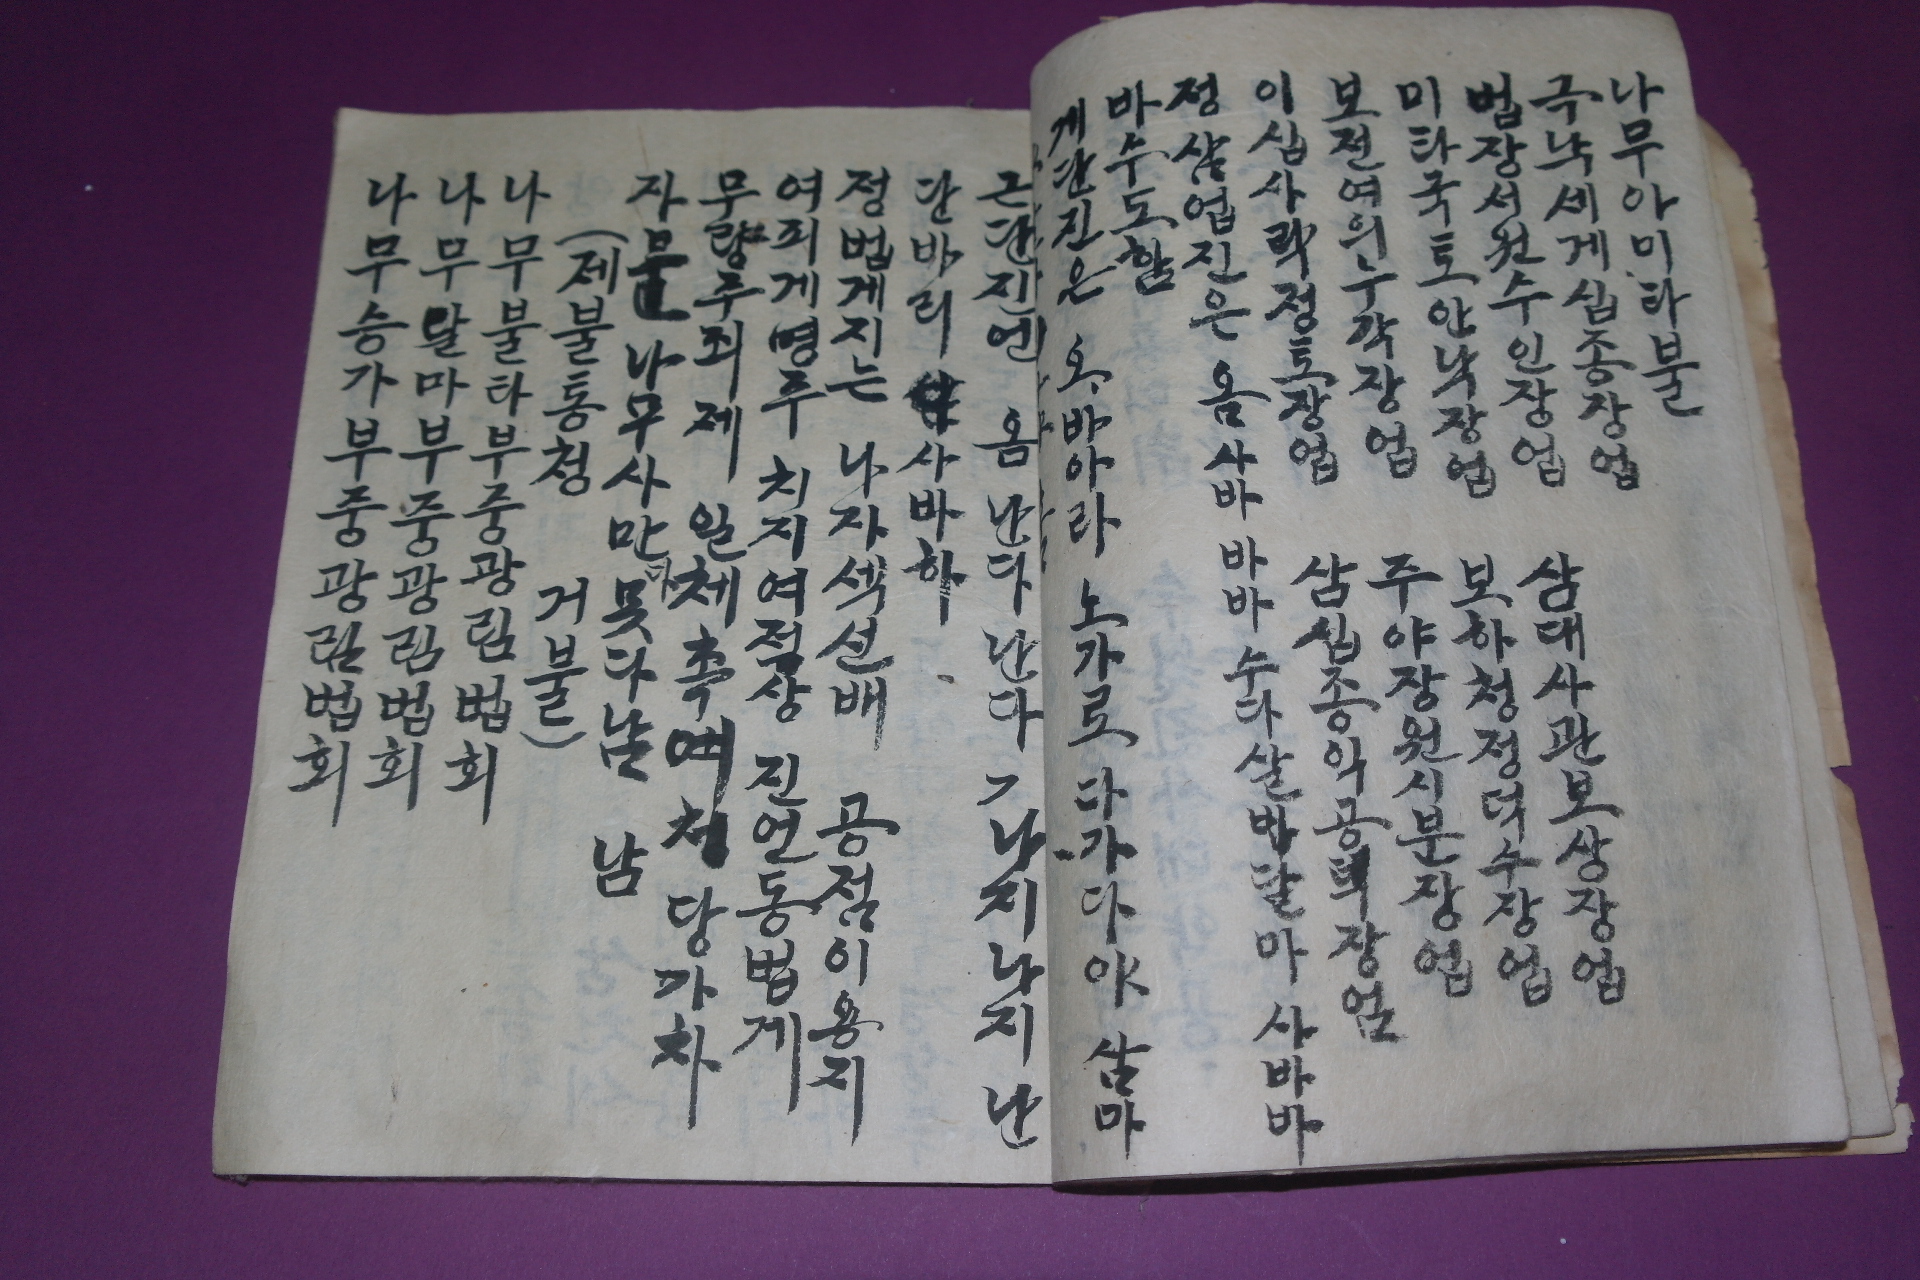 나무아미타불
극낙세게심종장업
삼대사관보상장업
법장서원수인장업
보하청정덕수장업
미타국토안낙장업
주야장원시분장업
보전여의누각장업
삼십종악공덕장엄
이십사락정토장업
정삼업진은 옴 사바 바바 수다살바달마 사바바
바수도함
게단진은 오、바아라 노가로 다가다야 삼마
근단진엔 옴 난다 난다 나지나지 난
단바리 사바하
정법게지는 나자색선배 공점이용지
여피게명루 치지여정상 진언동법게
무량루죄제 일체촉여처 당가차
자 나무사만다못다남 남
(제불통청 거불)
나무불타부중광림법회
나무달마부중광림법회
나무승가부중광림법회